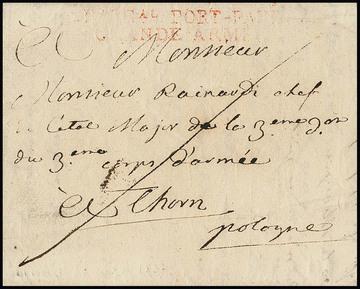 PORT-PAYÉ
GRANDE ARMÉE
A Monsieur
Monsieur Rainardi chef
de l'état Major de la 3.eme D.on
du 3.eme corps d'armée
à Thorn
pologne